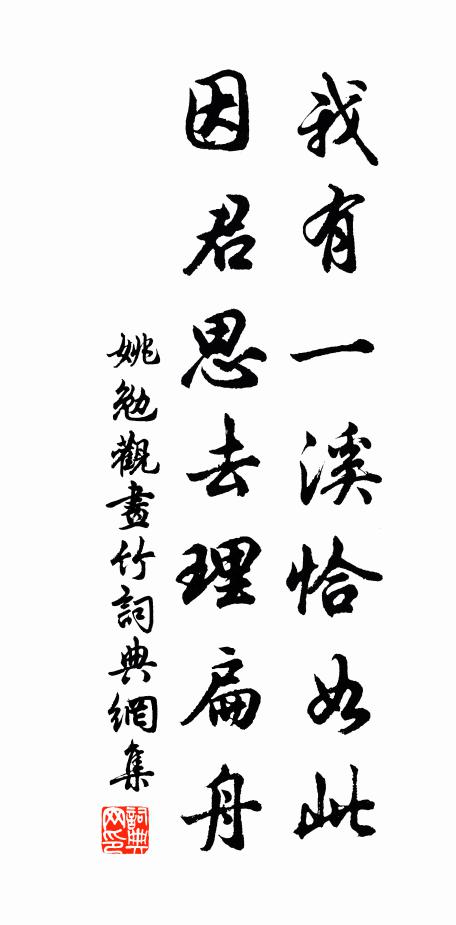 我有一溪恰如此
因君思去理扁舟
姚勉觀畫竹詞典網集
詞典网印